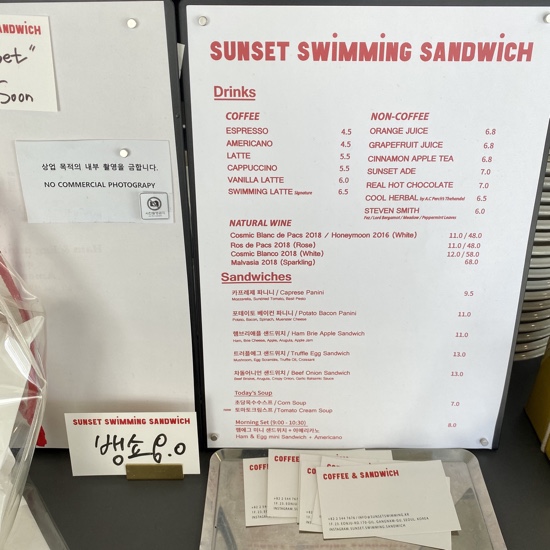 ANDWICH
et"
Soon
상업 목적의 내부 촬영을 금합니다.
NO COMMERCIAL PHOTOGRAPY
SUNSET SWIMMING SANDWICH
Drinks
COFFEE
ESPRESSO 4.5
AMERICANO 4.5
LATTE 5.5
CAPPUCCINO 5.5
VANILLA LATTE 6.0
SWIMMING LATTE Signature 6.5
NON-COFFEE
ORANGE JUICE 6.8
GRAPEFRUIT JUICE 6.8
CINNAMON APPLE TEA 6.8
SUNSET ADE 7.0
REAL HOT CHOCOLATE 7.0
COOL HERBAL by A.C Perch's Thehandel 6.5
STEVEN SMITH 6.0
Fez / Lord Bergamot / Meadow / Peppermint Leaves
NATURAL WINE
Cosmic Blanc de Pacs 2018 / Honeymoon 2016 (White) 11.0 / 48.0
Ros de Pacs 2018 (Rose) 11.0 / 48.0
Cosmic Blanco 2018 (White) 12.0 / 58.0
Malvasia 2018 (Sparkling) 68.0
Sandwiches
카프레제 파니니 / Caprese Panini 9.5
Mozzarella, Sundried Tomato, Basil Pesto
포테이토 베이컨 파니니 / Potato Bacon Panini 11.0
Potato, Bacon, Spinach, Muenster Cheese
햄브리애플 샌드위치 / Ham Brie Apple Sandwich 11.0
Ham, Brie Cheese, Apple, Arugula, Apple Jam
트러플에그 샌드위치 / Truffle Egg Sandwich 13.0
Mushroom, Egg Scramble, Truffle Oil, Croissant
자동어니언 샌드위치 / Beef Onion Sandwich 13.0
Beef Brisket, Arugula, Crispy Onion, Garlic Balsamic Sauce
Today's Soup
초당옥수수스프 / Corn Soup 7.0
토마토크림스프 / Tomato Cream Soup
Morning Set (9:00 - 10:30)
햄에그 미니 샌드위치 + 아메리카노 8.0
Ham & Egg mini Sandwich + Americano
SUNSET SWIMMING SANDWICH
COFFEE
COFFEE
COFFEE &
COFFEE & SANDWICH
INSTAGRAM SUNSET.SWIMMING.SANDWICH